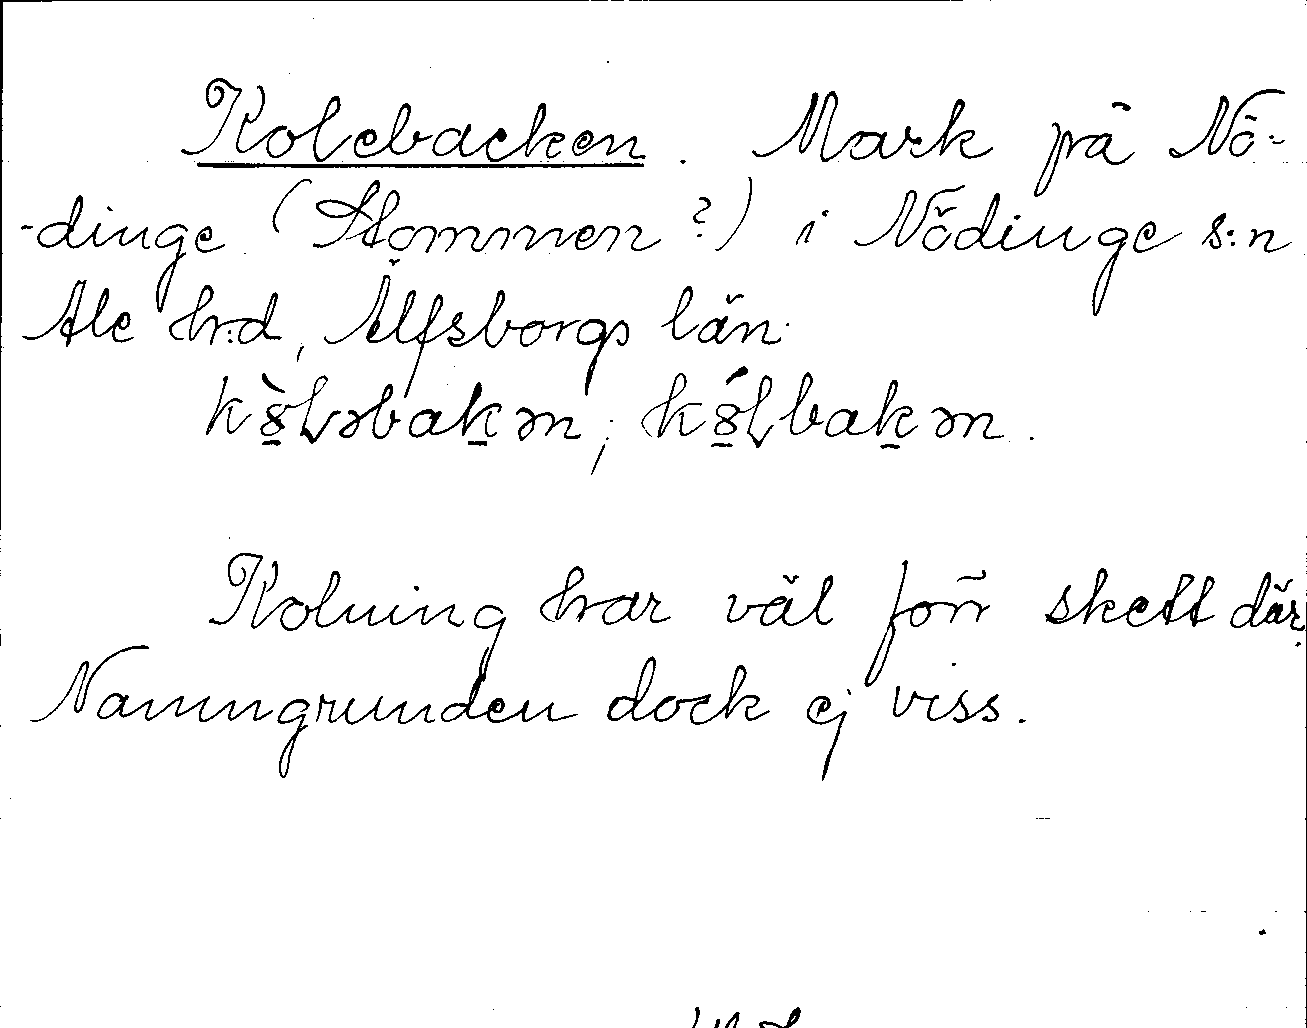 Kolebacken. Mark på Nö-
-dinge (Stommen?) i Nödinge s:n
Ale h:d, Älfsborgs län.
kò̱Ləbaḵən; kó̱Lbaḵən.
Kolning har väl förr skett där.
Namngrunden dock ej viss.